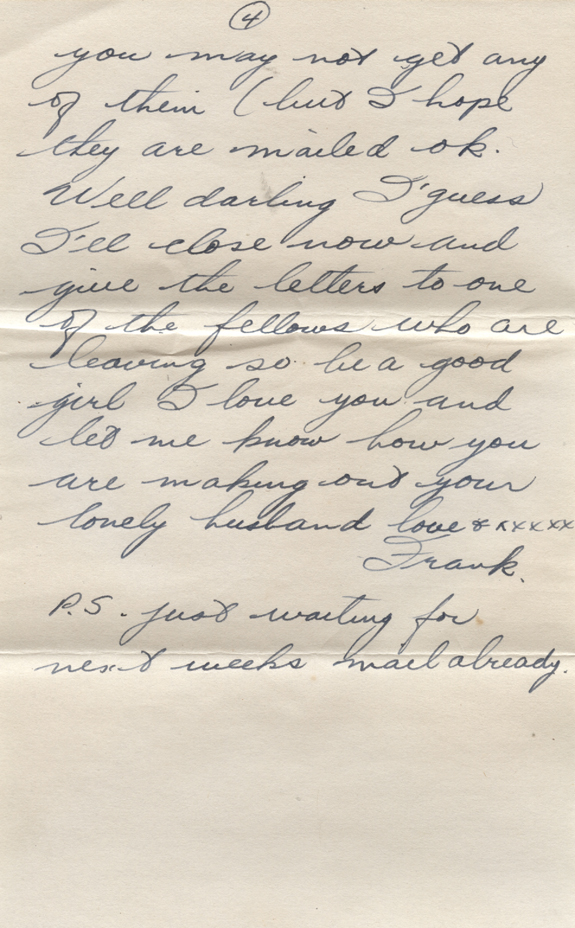 4
you may not get any
of them (but I hope
they are mailed ok.
Well darling I'guess
I'll close now and
give the letters to one
of the fellows who are
leaving so be a good
girl I love you and
let me know how you
are making out your
lonely husband love & xxxxxx
Frank.
P.S. just waiting for
next weeks mail already.